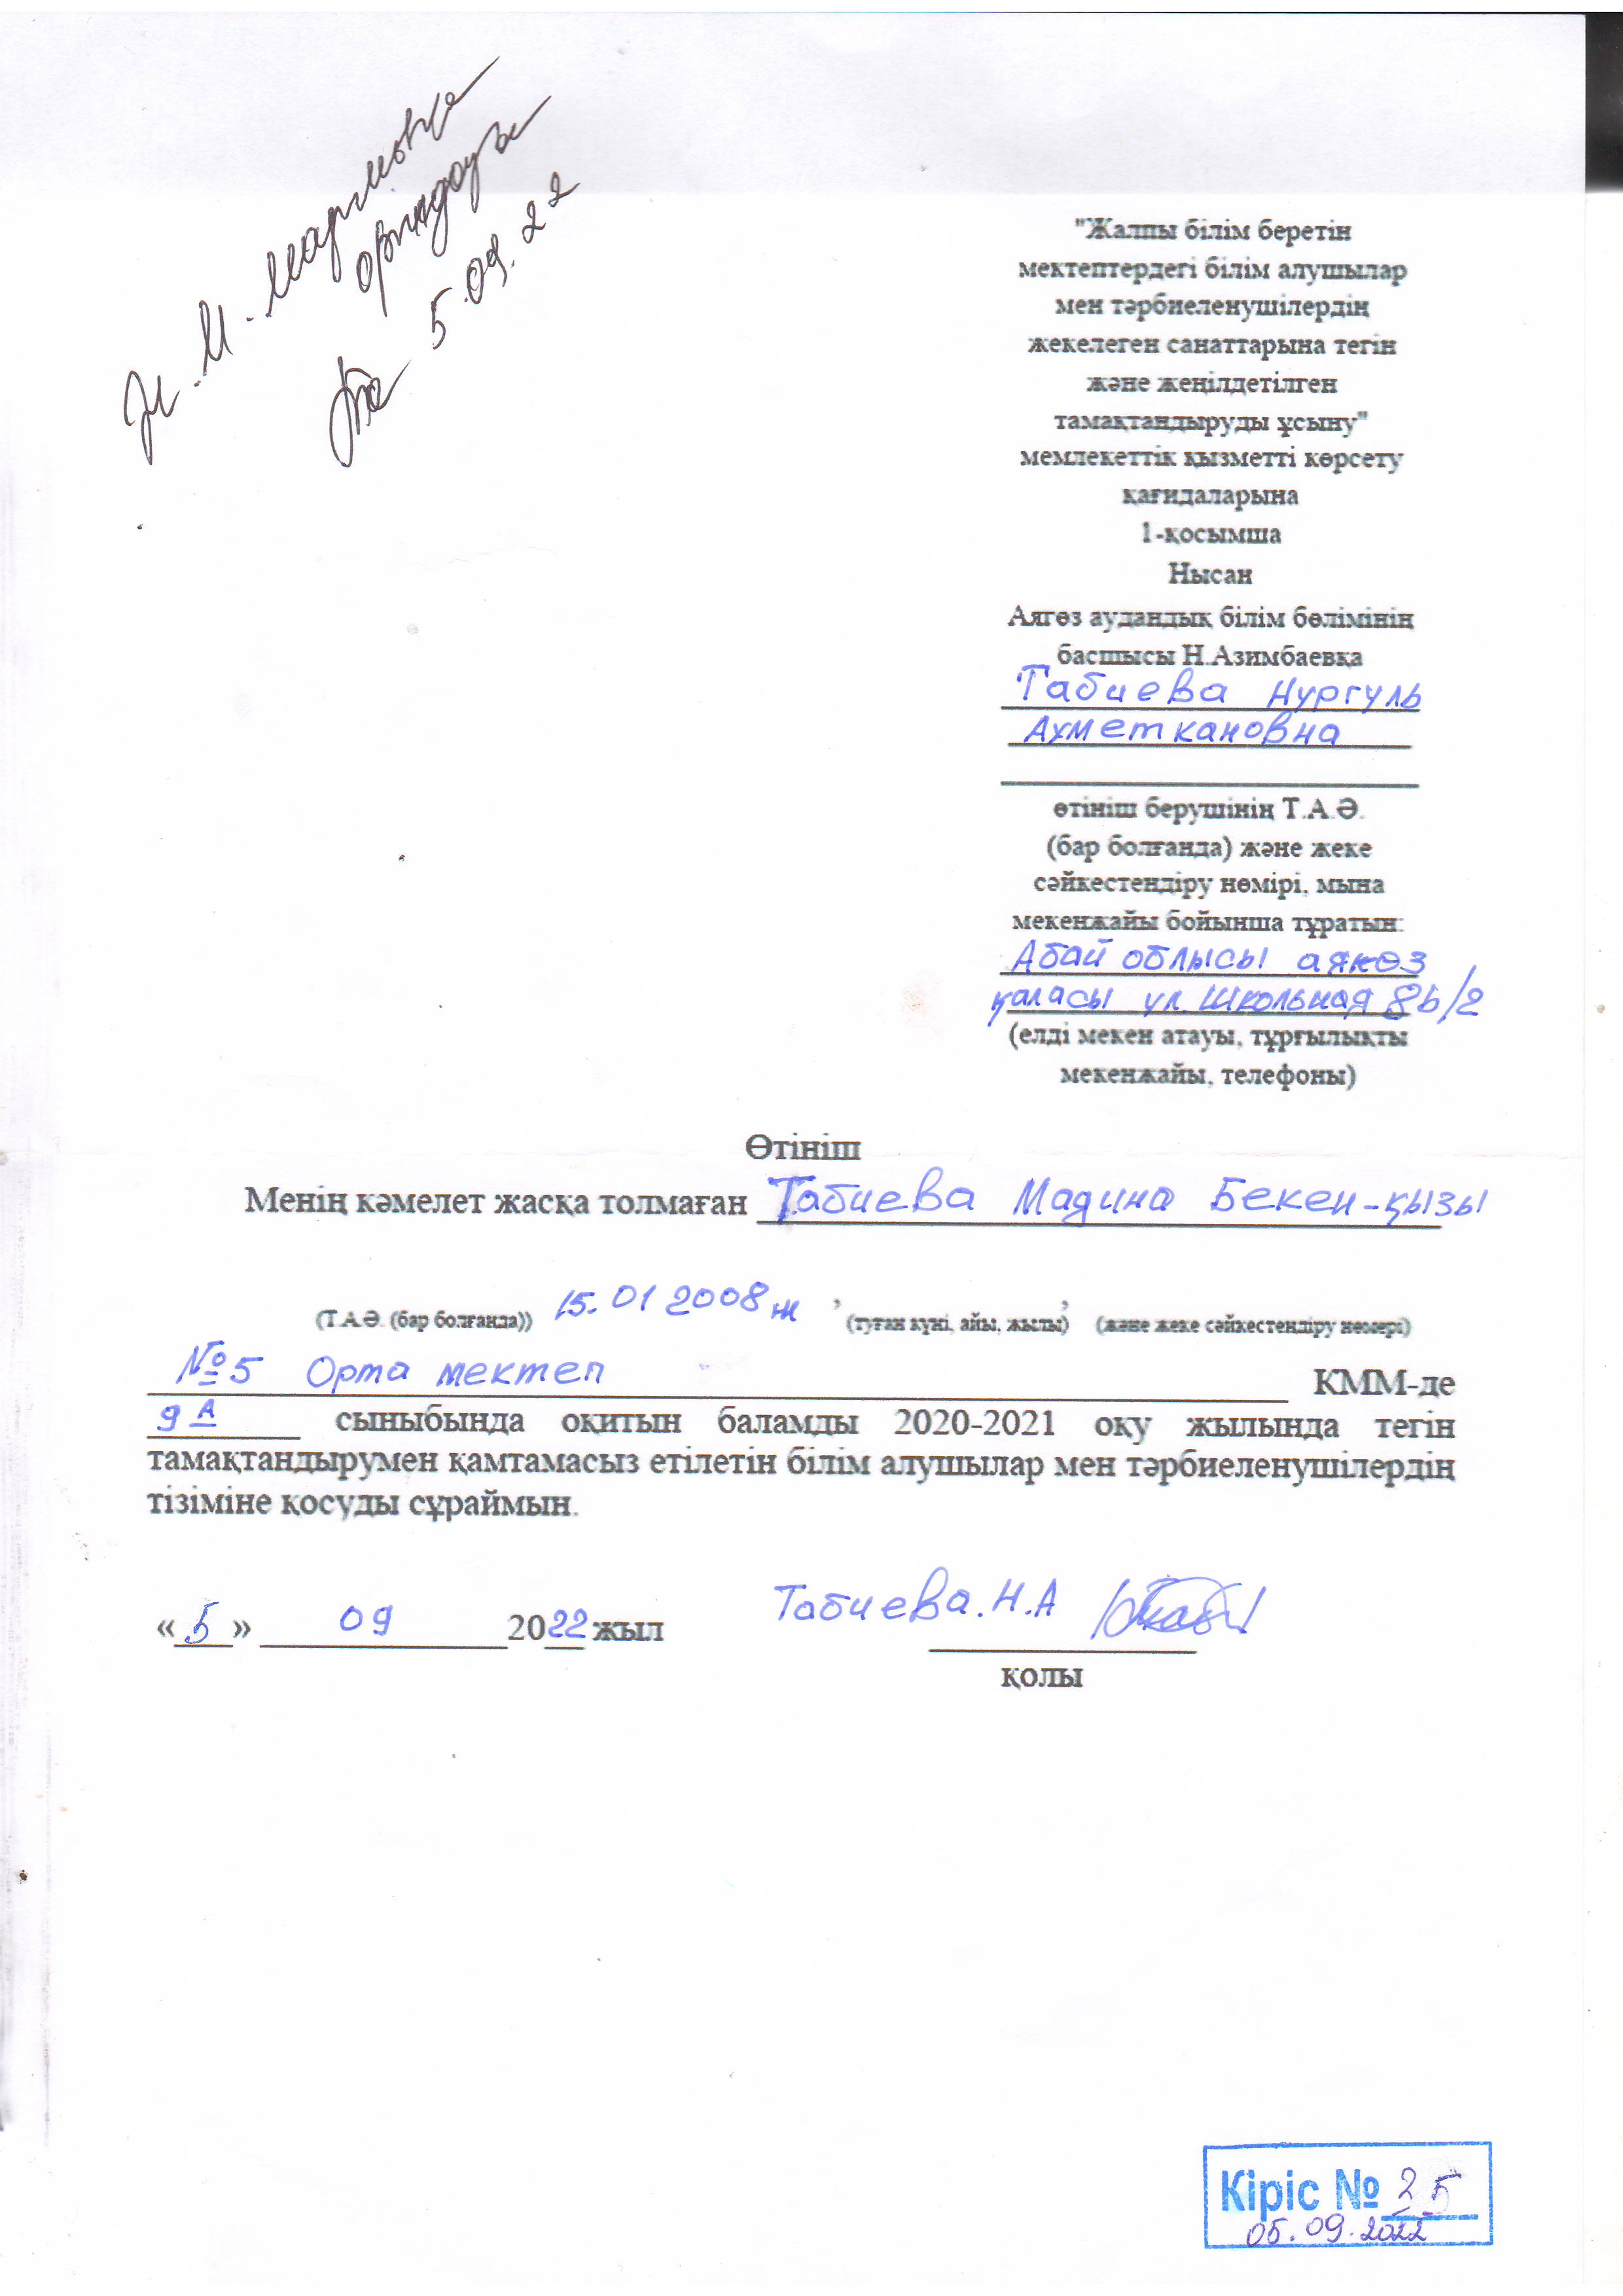 орындауға
5.09.22
"Жалпы білім беретін
мектептердегі білім алушылар
мен тәрбиеленушілердің
жекелеген санаттарына тегін
және жеңілдетілген
тамақтандыруды ұсыну"
мемлекеттік қызметті көрсету
қағидаларына
1-қосымша
Нысан
Аягөз аудандық білім бөлімінің
басшысы Н.Азимбаевқа
Табиева Нургуль
Ахметкановна
өтініш берушінің Т.А.Ә.
(бар болғанда) және жеке
сәйкестендіру нөмірі, мына
мекенжайы бойынша тұратын:
Абай облысы аякөз
қаласы ул. Школьная 8b/2
(елді мекен атауы, тұрғылықты
мекенжайы, телефоны)
Өтініш
Менің кәмелет жасқа толмаған Табиева Мадина Бекен-қызы
15.01 2008 ж , ,
(Т.А.Ә. (бар болғанда)) (туған күні, айы, жылы) (және жеке сәйкестендіру нөмері)
№5 Орта мектеп КММ-де
9 А сыныбында оқитын баламды 2020-2021 оқу жылында тегін
тамақтандырумен қамтамасыз етілетін білім алушылар мен тәрбиеленушілердің
тізіміне қосуды сұраймын.
«5» 09 2022 жыл Табиева.Н.А
қолы
Кіріс № 25
05.09.2022